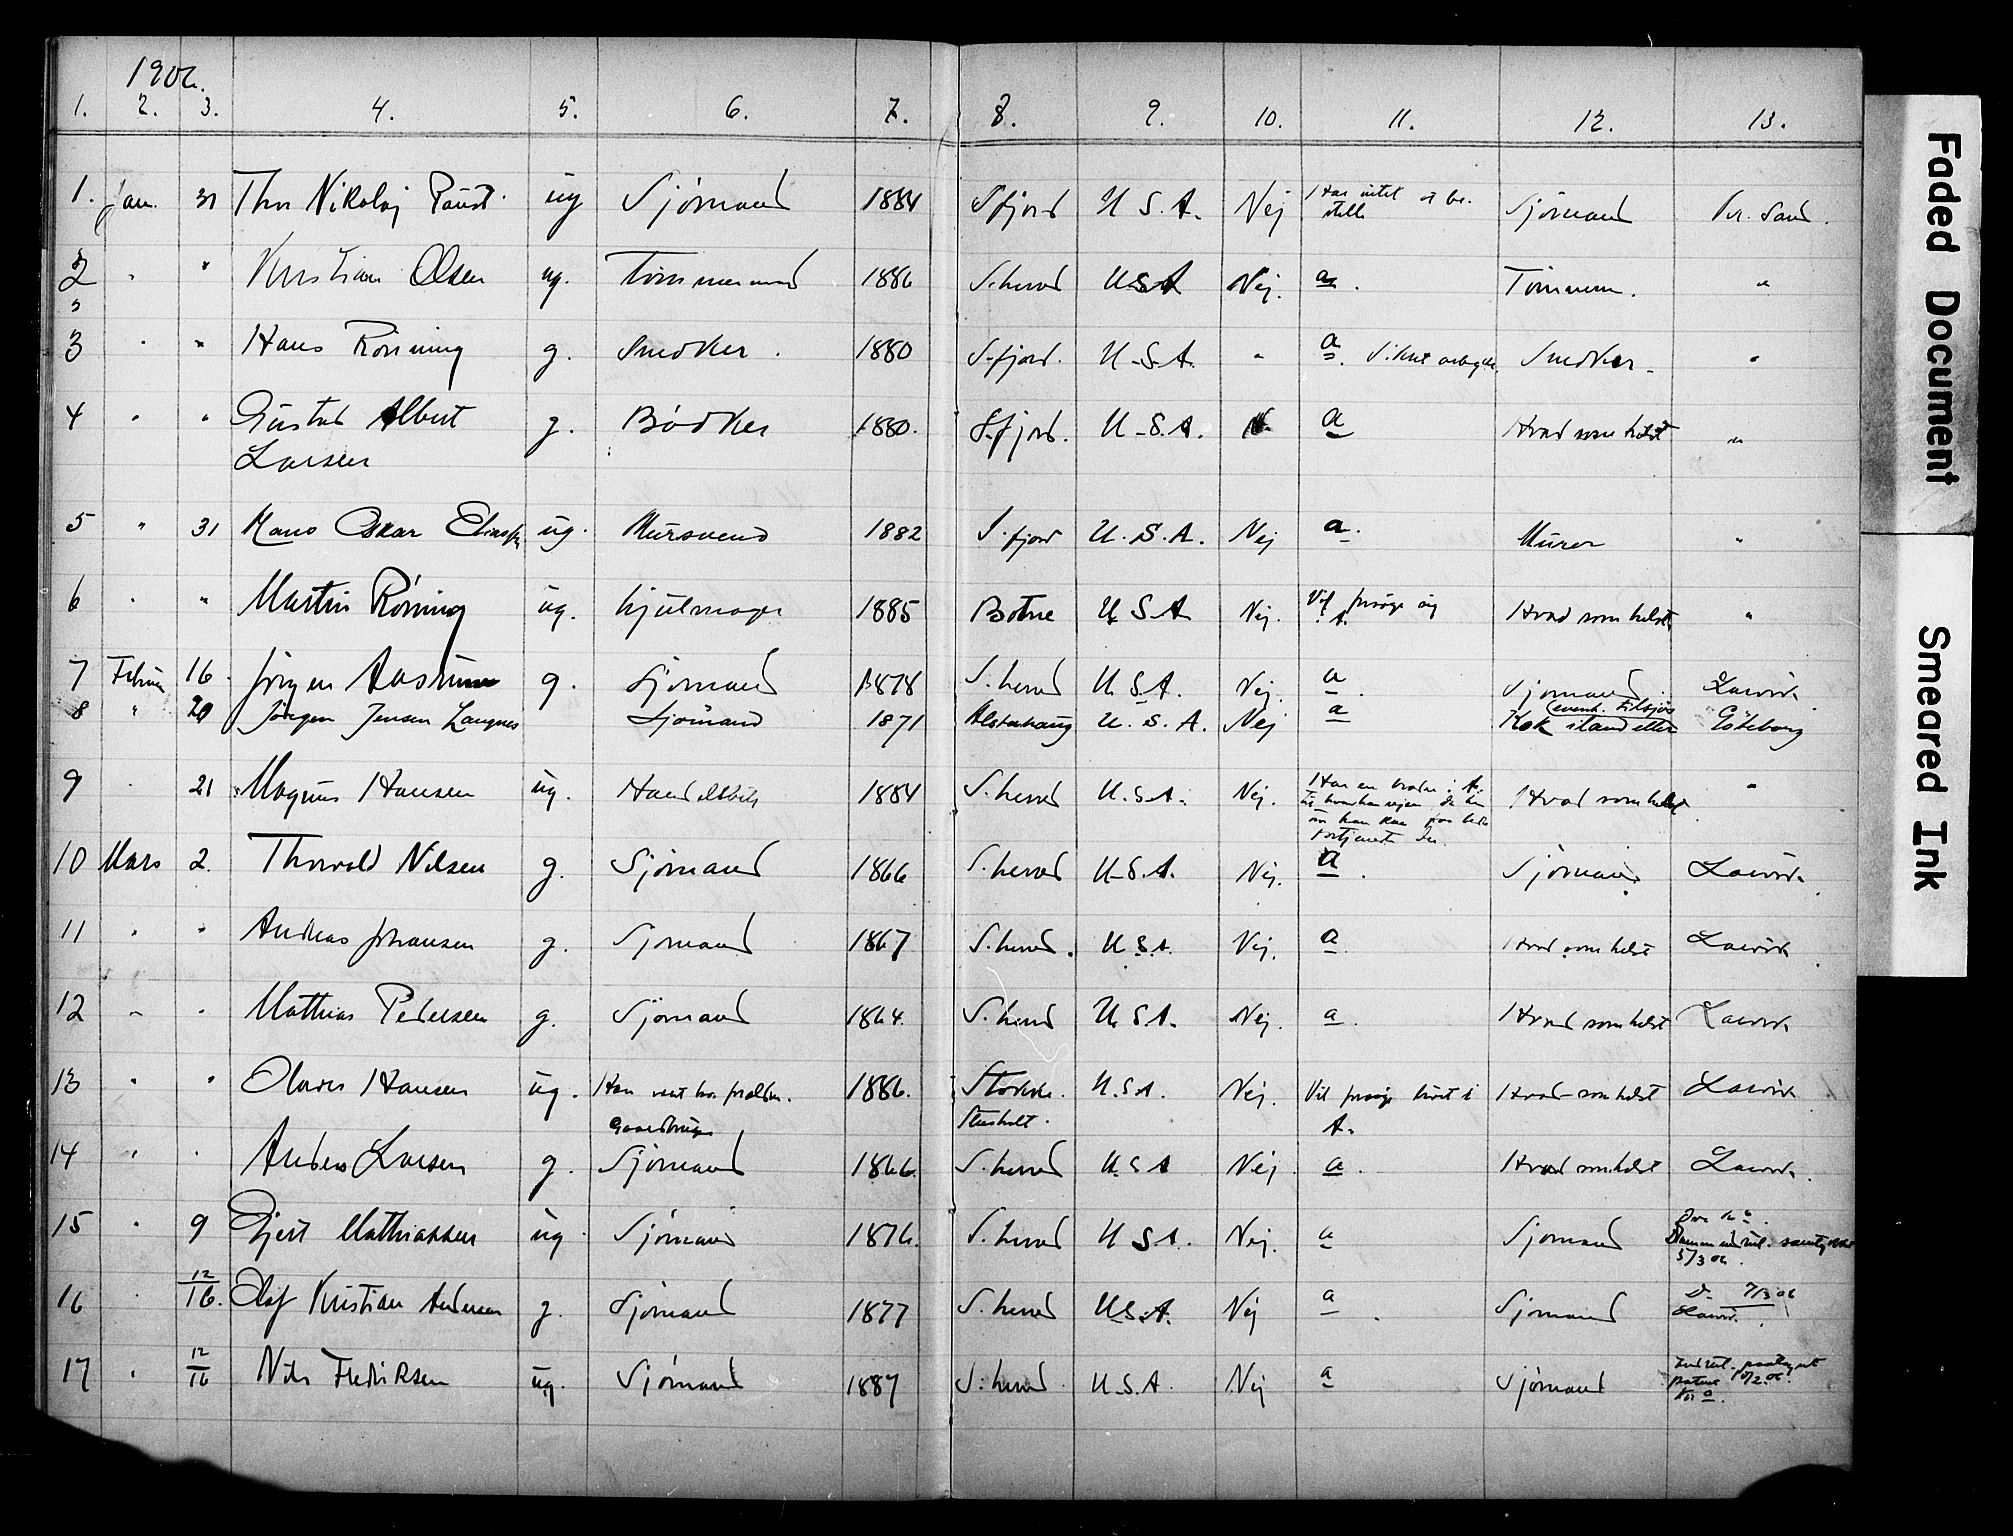 1906.
1. 2. 3. 4. 5. 6. 7. 8. 9. 10. 11. 12. 13.
1. Jan. 31 Thor Nikolaj ug Sjömand 1884 S.fjord U.S.A. Nej Har intet at be- Sjömand Kr. Sand.
stille
2 " " Kristian Olsen ug. Tömmermand 1886 S.herred U.S.A Nej. a. Tömmerm. "
3 " " Hans Rönning g. Snedker. 1880 S.fjord. U.S.A. " a. Snedker "
4 " " Gustav Albert g. Bödker 1880. S.fjord. U.S.A. a Hvad som helst "
Larsen
5 " 31 Hans Oskar ug. Mursvend 1882 S.fjord U.S.A. Nej a. Murer "
6 " " Martin Röning ug. Hjulmager 1885 Botne U.S.A Nej. Vil prøve sig Hvad som helst "
i A.
7 16. Jörgen g. Sjömand 1878 S.herred U.S.A. Nej. a. Sjömand. Larvik
8 " 20 Jörgen Jensen Langnes Sjömand 1871 U.S.A. Nej a (event. tilsjös
Kok iland eller Göteborg
9 " 21 Magnus Hansen ug. 1884 S.herred U.S.A. Nej. Har en broder i A. Hvad som helst "
fortjeneste der.
10 Mars 2. Thorvald Nilsen g. Sjömand 1866 S.herred U.S.A. Nej. a. Sjömand Larvik.
11 " " Andreas Johansen g. Sjömand 1867 S.herred. U.S.A. Nej. a Hvad som helst Larvik
12 " " Mathias Pedersen g. Sjömand 1864. S.herred U.S.A. Nej. a. Hvad som helst Larvik
13 " " Olaves Hansen ug. Har vært hos 1886. Stokke. U.S.A. Nej. Vil prøve livet i Hvad som helst Larvik
Gaardbruger A.
14 " " Anders Larsen g. Sjömand 1866. S.herred U.S.A Nej. a. Hvad som helst Larvik.
15 " 9 Gjert Mathiassen ug. Sjömand 1876. S.herred U.S.A. Nej. a Sjömand
5/3 06.
16 " 12/16. Olaf Kristian Andersen g. Sjömand 1877 S.herred U.S.A. Nej a. Sjömand D. 7/3 06
Larvik.
17 " 12/16 Nils Fredriksen ug. Sjömand 1887 S.herred U.S.A. Nej a Sjömand
Faded Document
Smeared Ink